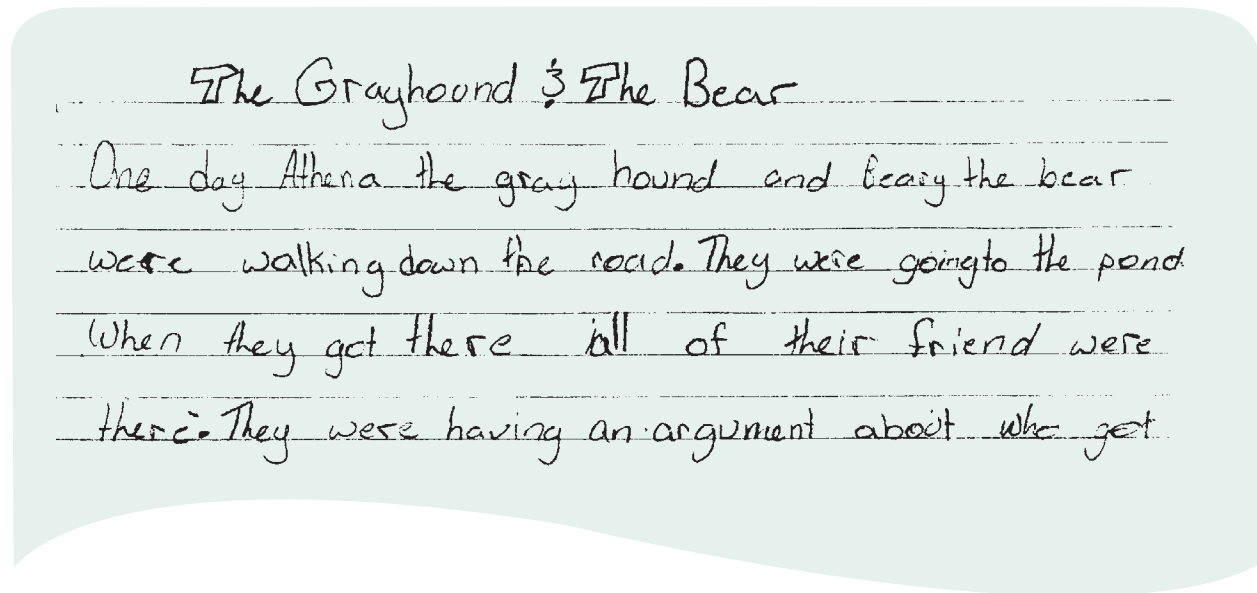 The Grayhound & The Bear
One day Athena the gray hound and Beary the bear
were walking down the road. They were going to the pond
When they got there all of their friend were
there. They were having an argument about who got